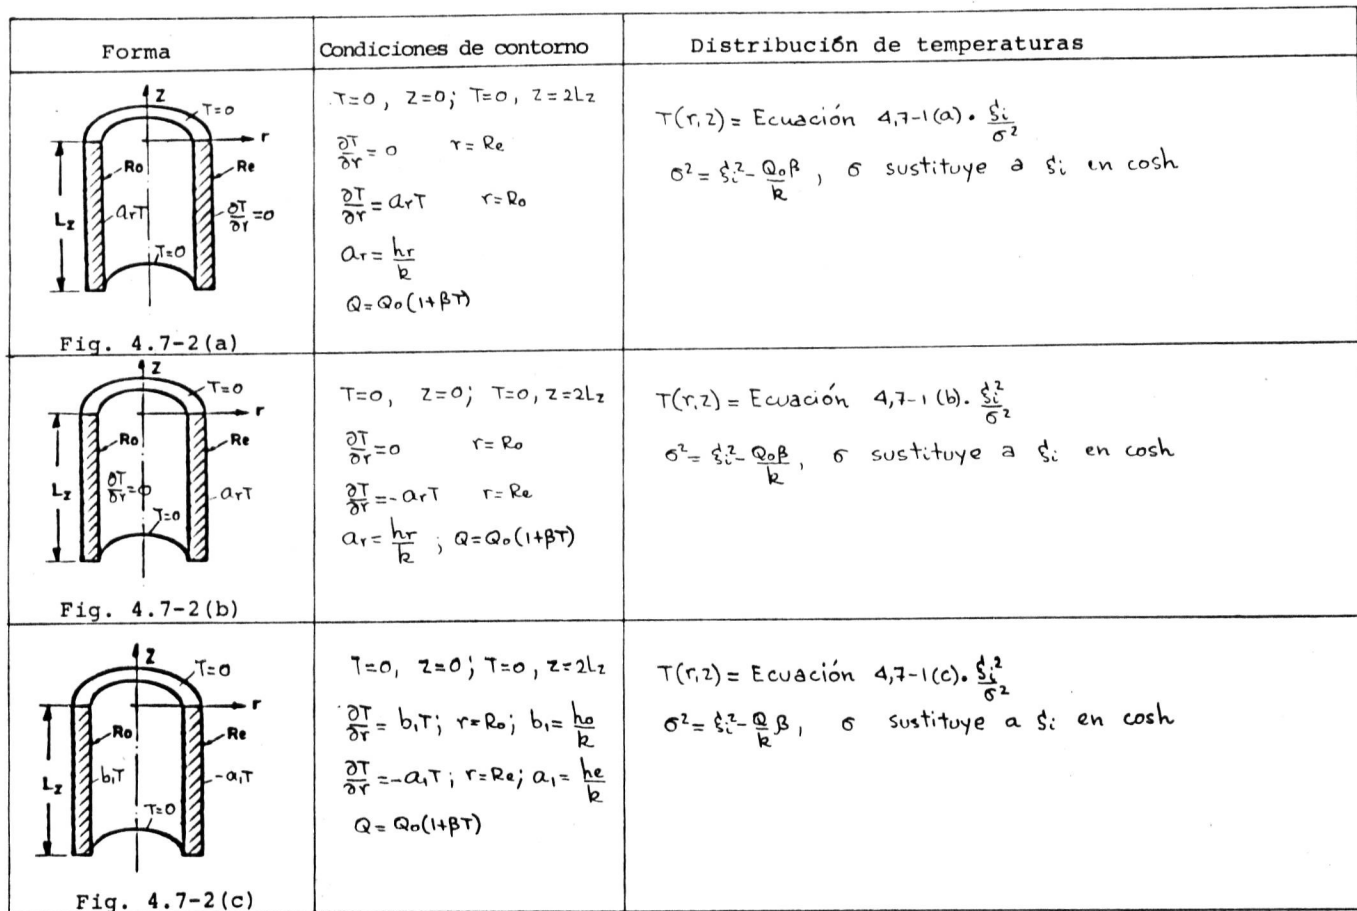 Forma
Condiciones de contorno
Distribución de temperaturas
z
T=0
r
Ro
Re
Lz
arT
∂T/∂r=0
T=0
Fig. 4.7-2(a)
T=0, Z=0; T=0, Z=2Lz
∂T/∂r=0 r=Re
∂T/∂r=arT r=Ro
ar=hr/k
Q=Qo(1+βT)
T(r,z)= Ecuación 4,7-1(a)· ξi/σ²
σ²=ξi²-Qoβ/k, σ sustituye a ξi en cosh
z
T=0
r
Ro
Re
Lz
∂T/∂r=0
arT
T=0
Fig. 4.7-2(b)
T=0, Z=0; T=0, Z=2Lz
∂T/∂r=0 r=Ro
∂T/∂r=-arT r=Re
ar=hr/k ; Q=Qo(1+βT)
T(r,z)= Ecuación 4,7-1(b)· ξi²/σ²
σ²=ξi²-Qoβ/k, σ sustituye a ξi en cosh
z
T=0
r
Ro
Re
Lz
b1T
-a1T
T=0
Fig. 4.7-2(c)
T=0, Z=0; T=0, Z=2Lz
∂T/∂r=b1T; r=Ro; b1=ho/k
∂T/∂r=-a1T; r=Re; a1=he/k
Q=Qo(1+βT)
T(r,z)= Ecuación 4,7-1(c)· ξi²/σ²
σ²=ξi²-Q/k β, σ sustituye a ξi en cosh